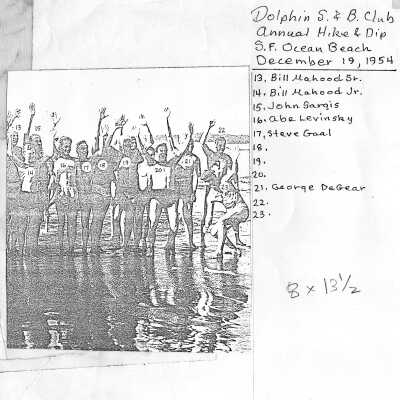 Dolphin S. & B. Club
Annual Hike & Dip
S.F. Ocean Beach
December 19, 1954
13. Bill Mahood Sr.
14. Bill Mahood Jr.
15. John Sargis
16. Abe Levinsky
17. Steve Gaal
18.
19.
20.
21. George DeGear
22.
23.
8 x 13 1/2
13
15
22
16
17
18
19
14
20
21
23